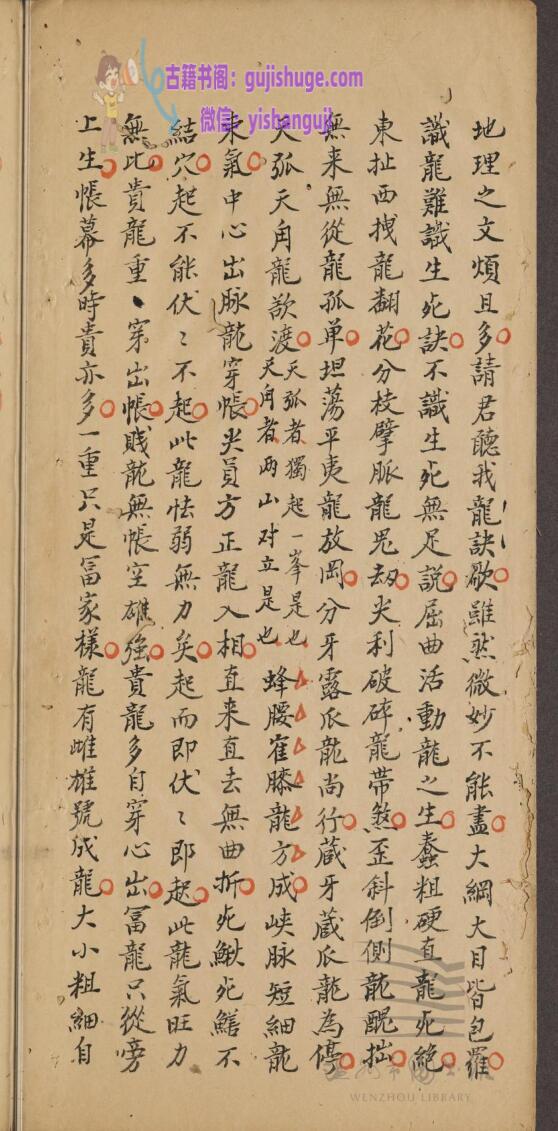 古籍书阁：gujishuge.com
微信：yishanguji
地理之文煩且多請君聽我龍訣歌雖然微妙不能盡大綱大目皆包羅
識龍難識生死訣不識生死無足說屈曲活動龍之生蠢粗硬直龍死絕
東扯西拽龍翻花分枝擘脈龍鬼劫尖利破碎龍帶煞歪斜倒側龍醜拙
無来無從龍孤单坦蕩平夷龍放岡分牙露爪龍尚行蔵牙蔵爪龍為停
天弧天角龍欲渡天弧者獨起一峯是也天角者两山对立是也蜂腰隺膝龍方成峽脉短細龍
束氣中心出脉龍穿帳尖員方正龍入相直来直去無曲折死鰍死鱔不
結穴起不能伏〻不起此龍怯弱無力矣起而即伏〻即起此龍氣旺力
無比貴龍重〻穿出帳賤龍無帳空雄強貴龍多自穿心出冨龍只從旁
上生帳幕多時貴亦多一重只是冨家樣龍有雌雄號成龍大小粗細自
WENZHOU LIBRARY